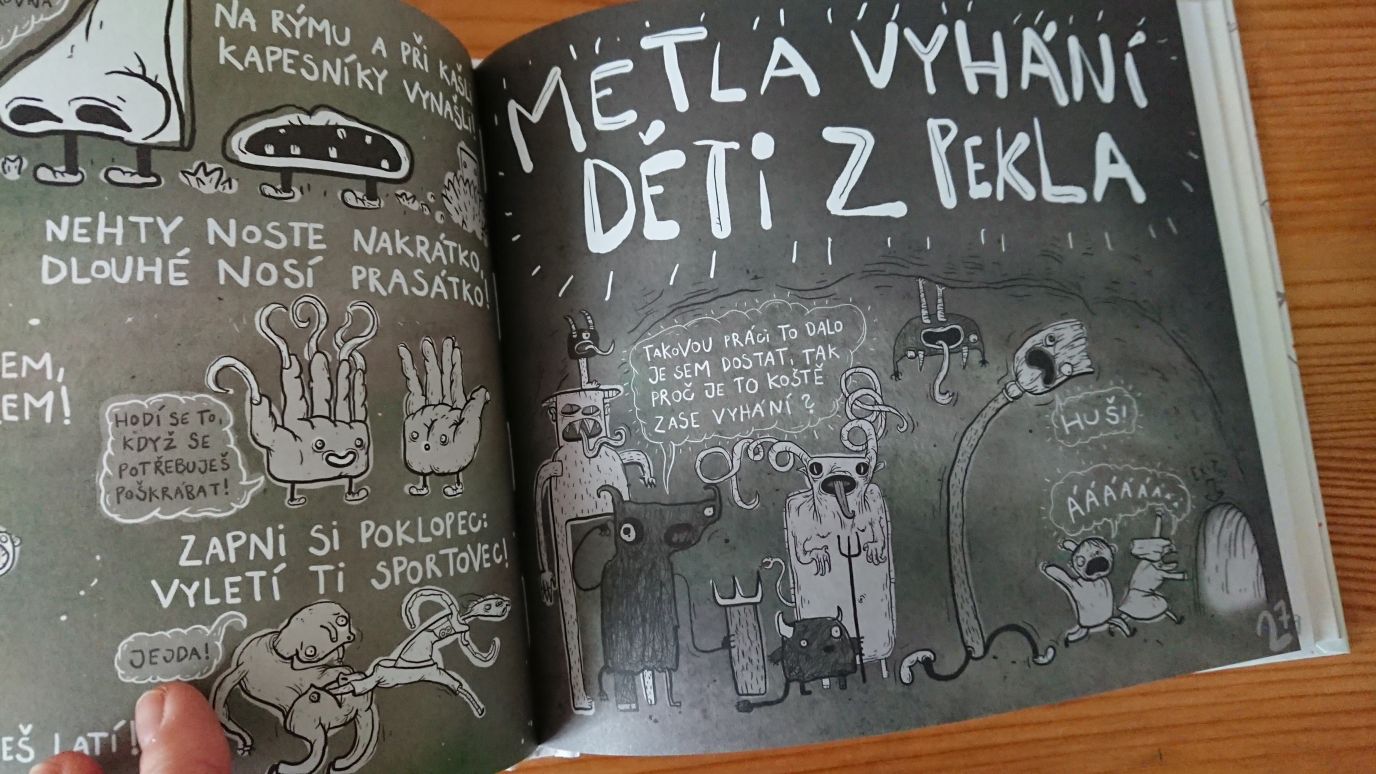 NA RÝMU A PŘI KAŠLI
KAPESNÍKY VYNAŠLI!
NEHTY NOSTE NAKRÁTKO,
DLOUHÉ NOSÍ PRASÁTKO!
HODÍ SE TO,
KDYŽ SE
POTŘEBUJEŠ
POŠKRÁBAT!
ZAPNI SI POKLOPEC:
VYLETÍ TI SPORTOVEC!
JEJDA!
LATÍ!
METLA VYHÁNÍ
DĚTI Z PEKLA
TAKOVOU PRÁCI TO DALO
JE SEM DOSTAT, TAK
PROČ JE TO KOŠTĚ
ZASE VYHÁNÍ?
HUŠ!
ÁÁÁÁÁÁ!
27